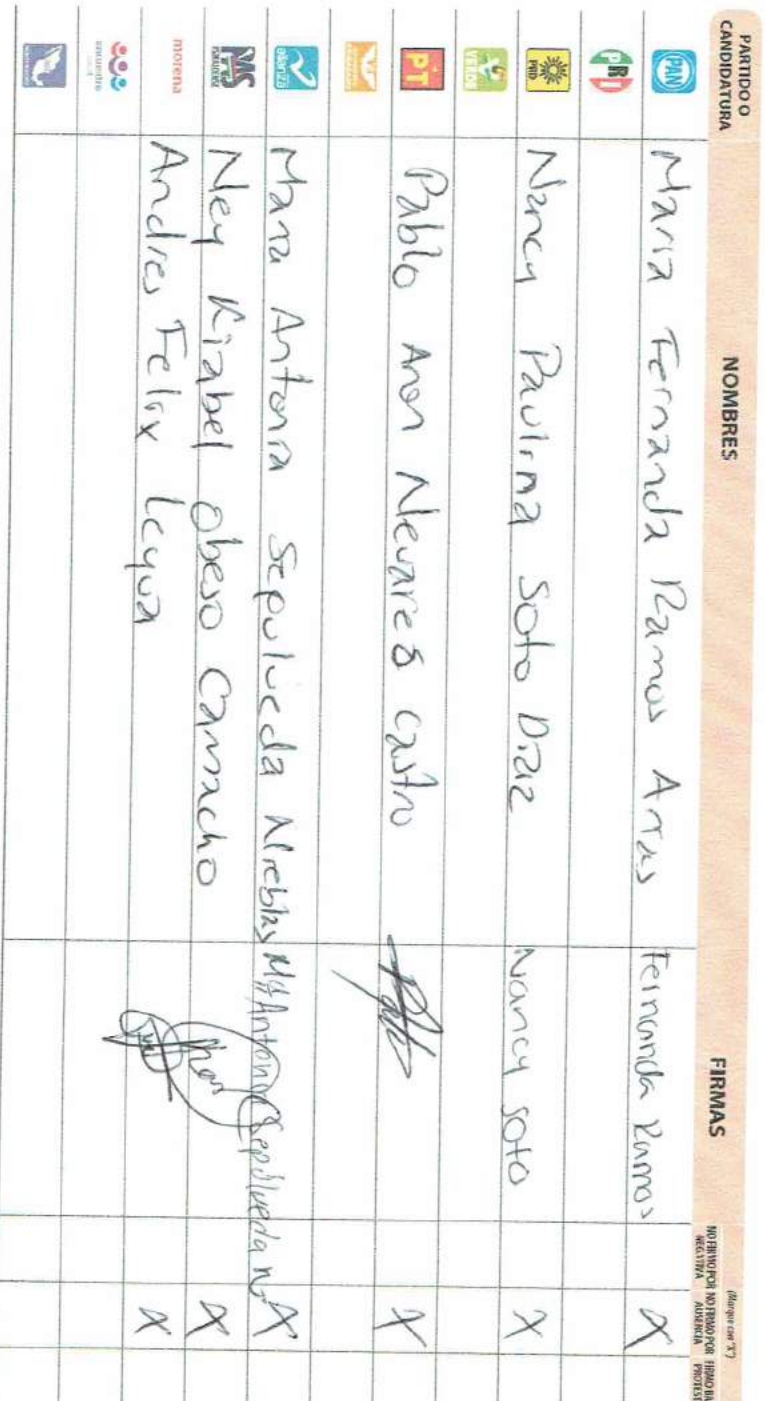 PARTIDO O CANDIDATURA NOMBRES FIRMAS (Marque con "X") NO FIRMO POR NEGATIVA NO FIRMO POR AUSENCIA FIRMO BA PROTEST
PAN Maria Fernanda Ramos Arias Fernanda Ramos X
PRI
PRD Nancy Paulina Soto Diaz Nancy Soto X
VERDE
PT Pablo Aron Nevares Castro X
alianza Maria Antonia Sepulveda Ma Antonia Sepulveda N X
PAS Ney Kiabel Obeso Camacho X
morena Andres Felix Leyva X
encuentro social